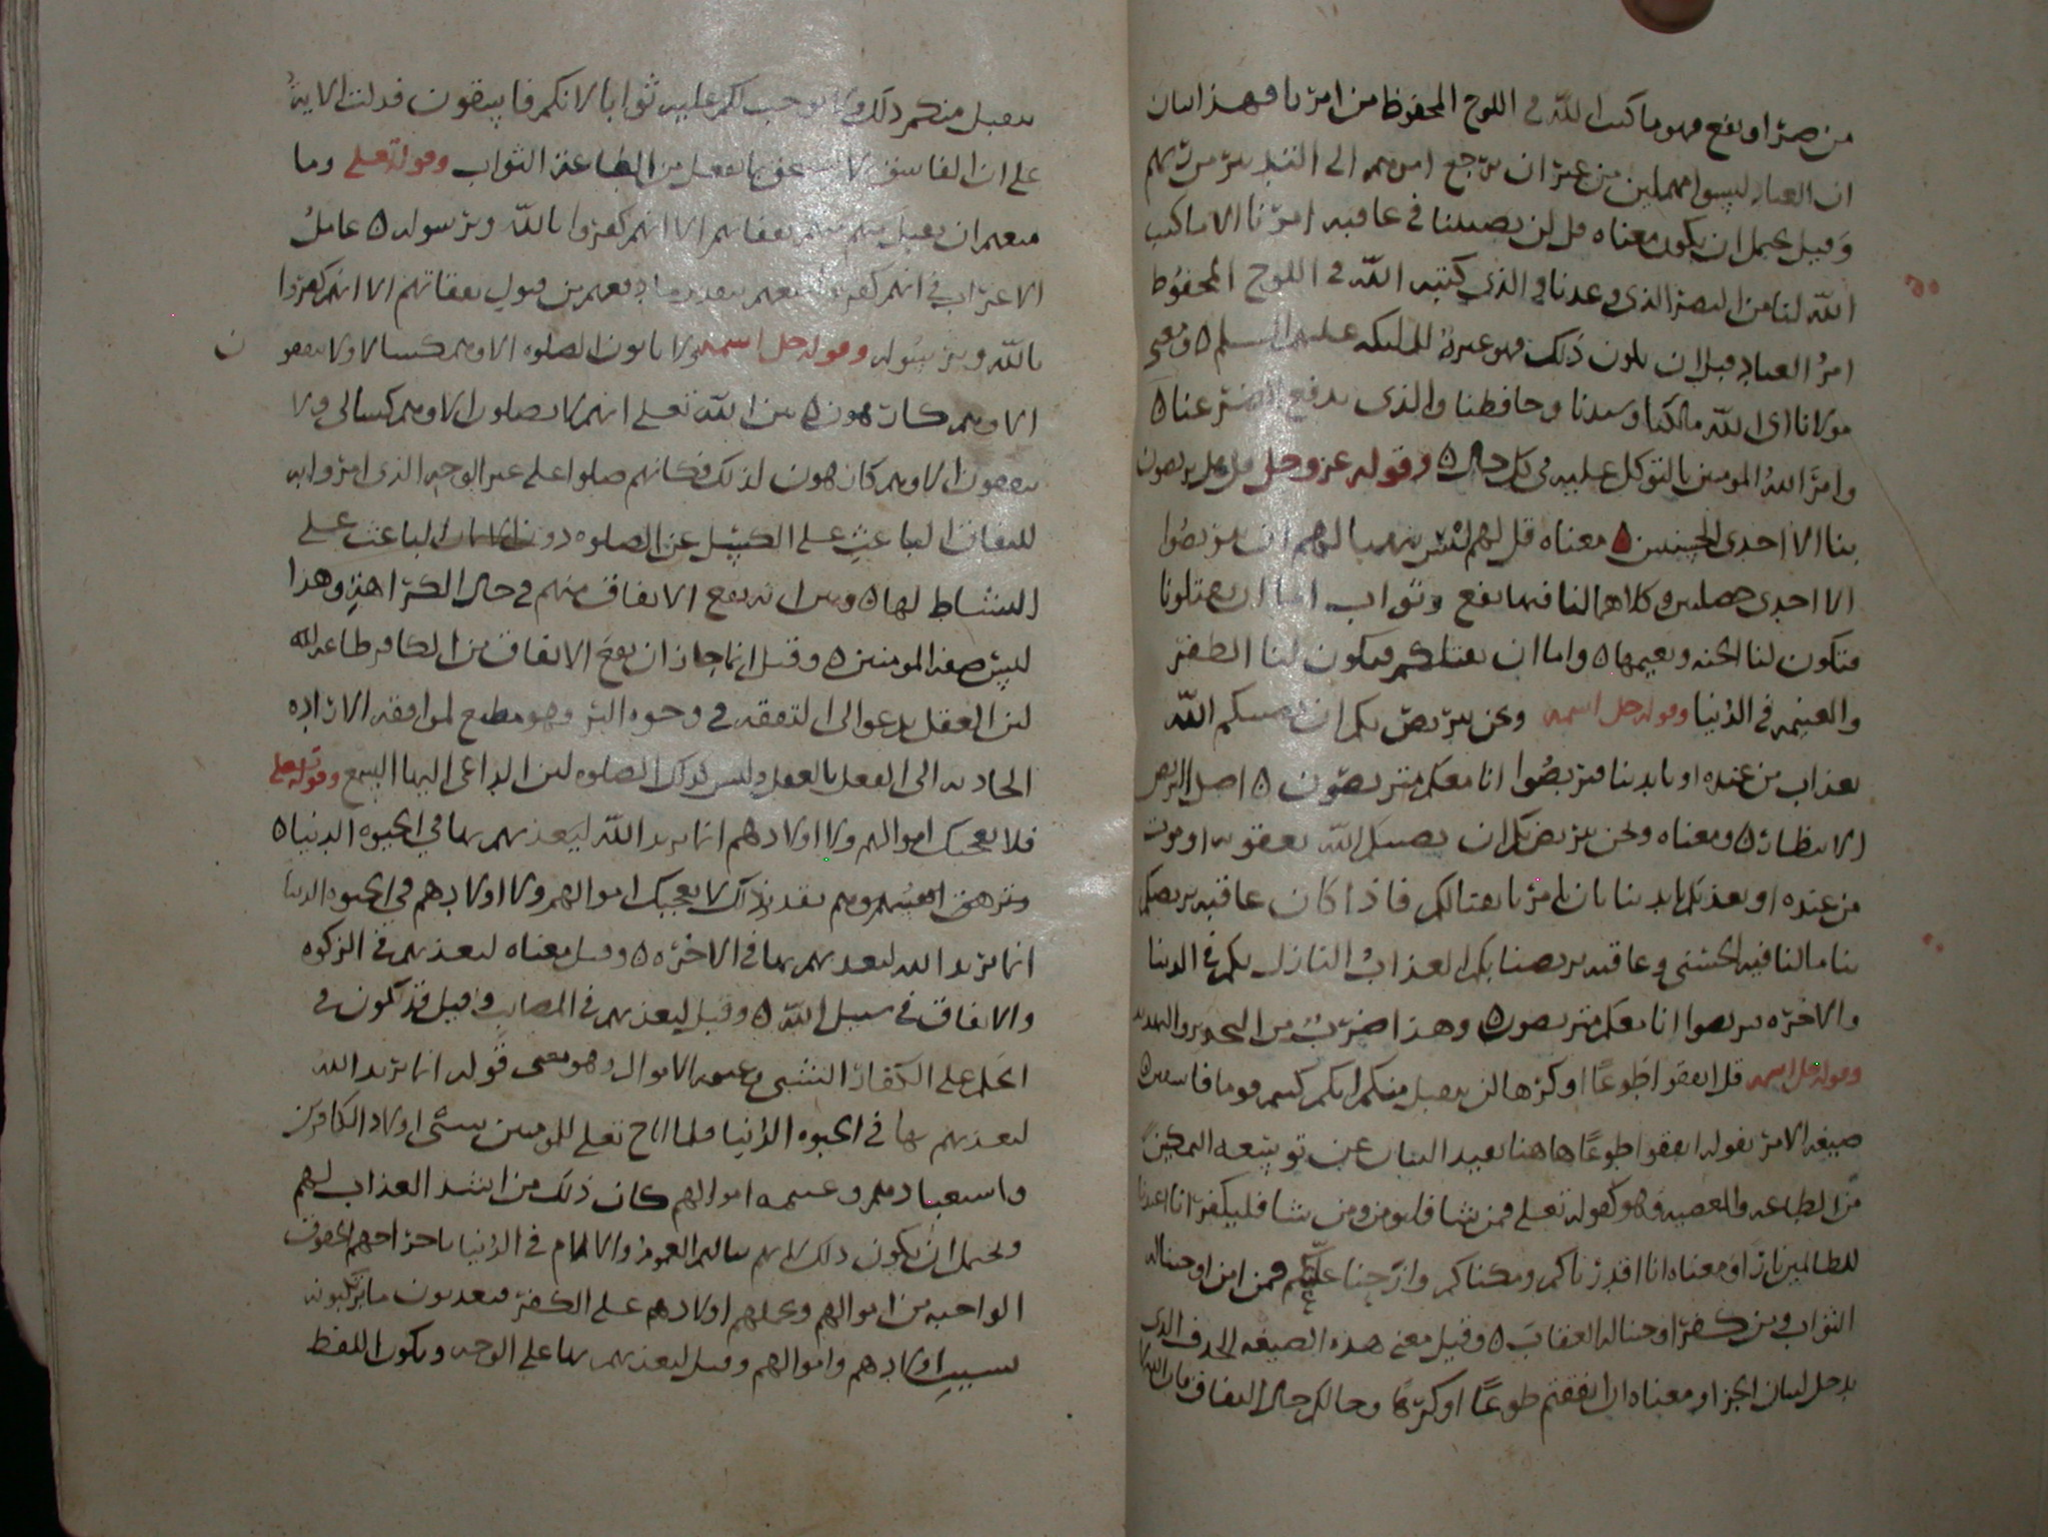 من ضرّ او نفع فهو ما كتب اللّه في اللوح المحفوظ من امرنا وهذا بيان
ان العباد ليسوا مهملين من غير ان يرجع امرهم الى التدبير من ربهم
وقيل يحتمل ان يكون معناه قل لن يصيبنا في عاقبه امرنا الا ما كتب
اللّه لنا من النصر الذي وعدنا والذي كتبه اللّه في اللوح المحفوظ
امر العباد قبل ان يكون ذلك فهو عبرة للملئكه عليهم السلم ٥ ومعنى
مولانا اي اللّه مالكنا وسيدنا وحافظنا والذي يدفع الضر عنا ٥
وامر اللّه المومنين بالتوكل عليه في كل حال ٥ وقوله عز وجل قل هل تربصون
بنا الا احدى الحسنيين ٥ معناه قل لهم لستم ان تتربصوا
الا احدى خصلتين وكلاهما لنا فيهما نفع وثواب اما ان تقتلونا
فتكون لنا الجنه ونعيمها ٥ واما ان نقتلكم فيكون لنا الظفر
والغنيمه في الدنيا وقوله جل اسمه ونحن نتربص بكم ان يصيبكم اللّه
بعذاب من عنده او بايدينا فتربصوا انا معكم متربصون ٥ اصل التربص
الانتظار ٥ ومعناه ونحن نتربص بكم ان يصيبكم اللّه بعقوبه او موت
من عنده او يعذبكم بايدينا بان يامرنا بقتالكم فاذا كان عاقبه تربصكم
بنا مالنا فيه الحسنى وعاقبه تربصنا بكم العذاب النازل بكم في الدنيا
والاخره تربصوا انا معكم متربصون ٥ وهذا ضرب من التحذير والتهديد
وقوله جل اسمه قل انفقوا طوعًا او كرها لن يتقبل منكم انكم كنتم قوما فاسقين ٥
صيغه الامر بقوله انفقوا طوعًا هاهنا تفيد البيان عن توسعه التمكين
من الطاعه والمعصيه وهو كقوله تعلى فمن شا فليومن ومن شا فليكفر انا اعتدنا
للظالمين نارًا ومعناه انا اقدرناكم ومكناكم وازحنا علتكم فمن امن اوجبنا له
الثواب ومن كفر اوجبنا له العقاب ٥ وقيل معنى هذه الصيغه الحرف الذي
يدخل لبيان الجزا ومعناه ان انفقتم طوعًا او كرهًا وحالكم حال النفاق فان اللّه لا
يتقبل منكم ذلك ولا يوجب لكم عليه ثوابا لانكم فاسقون فدلت الايه
على ان الفاسق لا يستحق بما يفعل من الطاعة الثواب وقوله تعلى وما
منعهم ان تقبل منهم نفقاتهم الا انهم كفروا باللّه وبرسوله ٥ عامل
الاعراب في انهم كفروا منعهم بتقدير ما منعهم من قبول نفقاتهم الا انهم كفروا
باللّه وبرسوله وقوله جل اسمه ولا ياتون الصلوه الا وهم كسالا ولا ينفقو
ن
الا وهم كارهون ٥ بين اللّه تعلى انهم لا يصلون الا وهم كسالى ولا
ينفقون الا وهم كارهون لذلك فكانهم صلوا على غير الوجه الذي امروا به
للنفاق الباعث على الكسل عن الصلوه دون الايمان الباعث على
النشاط لها ٥ وبين انه يقع الانفاق منهم في حال الكراهة وهذا
ليس صفة المومنين ٥ وقيل انما جاز ان يقع الانفاق من الكافر طاعه لله
لان العقل يدعو الى التفقه في وجوه البر وهو مطيع لموافقه الاراده
الجاذبه الى الفعل بالعقل وليس كذلك الصلوه لان الداعي اليها السمع وقوله تعلى
فلا تعجبك اموالهم ولا اولادهم انما يريد اللّه ليعذبهم بها في الحيوه الدنيا ٥
وتزهق انفسهم وهم تقديره ذلك لا تعجبك اموالهم ولا اولادهم في الحيوه الدنيا
انما يريد الله ليعذبهم بها في الاخره ٥ وقيل معناه ليعذبهم في الزكوه
والانفاق في سبيل اللّه ٥ وقيل ليعذبهم في المصايب وقيل قد تكون في
الحكم على الكفار السبي وغنيمه الاموال وهو معنى قوله انما يريد اللّه
ليعذبهم بها في الحيوه الدنيا فلما اباح تعلى للمومنين سبي اولاد الكافرين
واستعبادهم وغنيمه اموالهم كان ذلك من اشد العذاب لهم
ويحتمل ان يكون ذلك لانهم ينالهم الغموم والالام في الدنيا باخراجهم الحقوق
الواجبه من اموالهم وبحملهم اولادهم على الكفر فيعذبون ما يرتكبونه
بسبب اولادهم واموالهم وقيل ليعذبهم بها على الوجه ويكون اللفظ